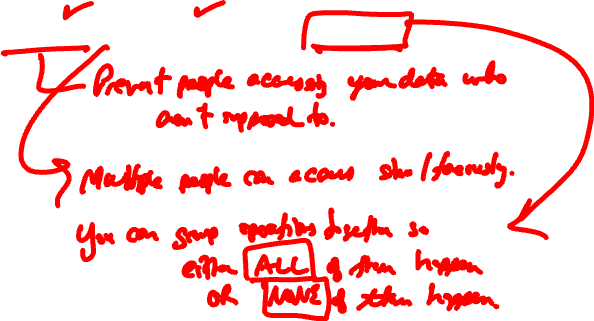 Prevent people accessing your data who
aren't supposed to.
Multiple people can access simultaneously.
You can group operations together so
either ALL of them happen
OR NONE of them happen.